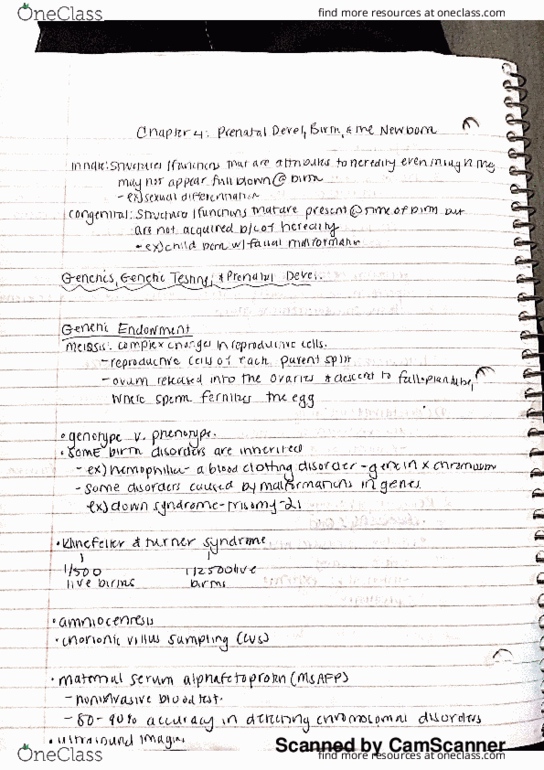 OneClass
find more resources at oneclass.com
Chapter 4: Prenatal Devel, Birth, & the Newborn
Innate: Structures/functions that are attributes to heredity even though they
may not appear full blown @ birth
- ex) sexual differentiation
congenital: Structure/functions that are present @ time of birth but
are not acquired b/c of heredity
- ex) child born w/ facial malformation
Genetics, Genetic Testing, & Prenatal Devel.
Genetic Endowment
meiosis: complex changes in reproductive cells.
- reproductive cells of each parent split
- ovum released into the ovaries & descent to fallopian tube,
where sperm fertilizes the egg
• genotype v. phenotype.
• some birth disorders are inherited
- ex) hemophilia - a blood clotting disorder - gene in x chromosom
- Some disorders caused by malformations in genes.
ex) down syndrome - trisomy-21
• klinefelter & turner syndrome
1/500
live births
1/2500 live
births
• amniocentesis
• chorionic villus sampling (CVS)
• maternal serum alphafetoprotein (MSAFP)
- noninvasive blood test.
- 80-90% accuracy in detecting chromosomal disorders
• ultrasound imaging
Scanned by CamScanner
OneClass
find more resources at oneclass.com